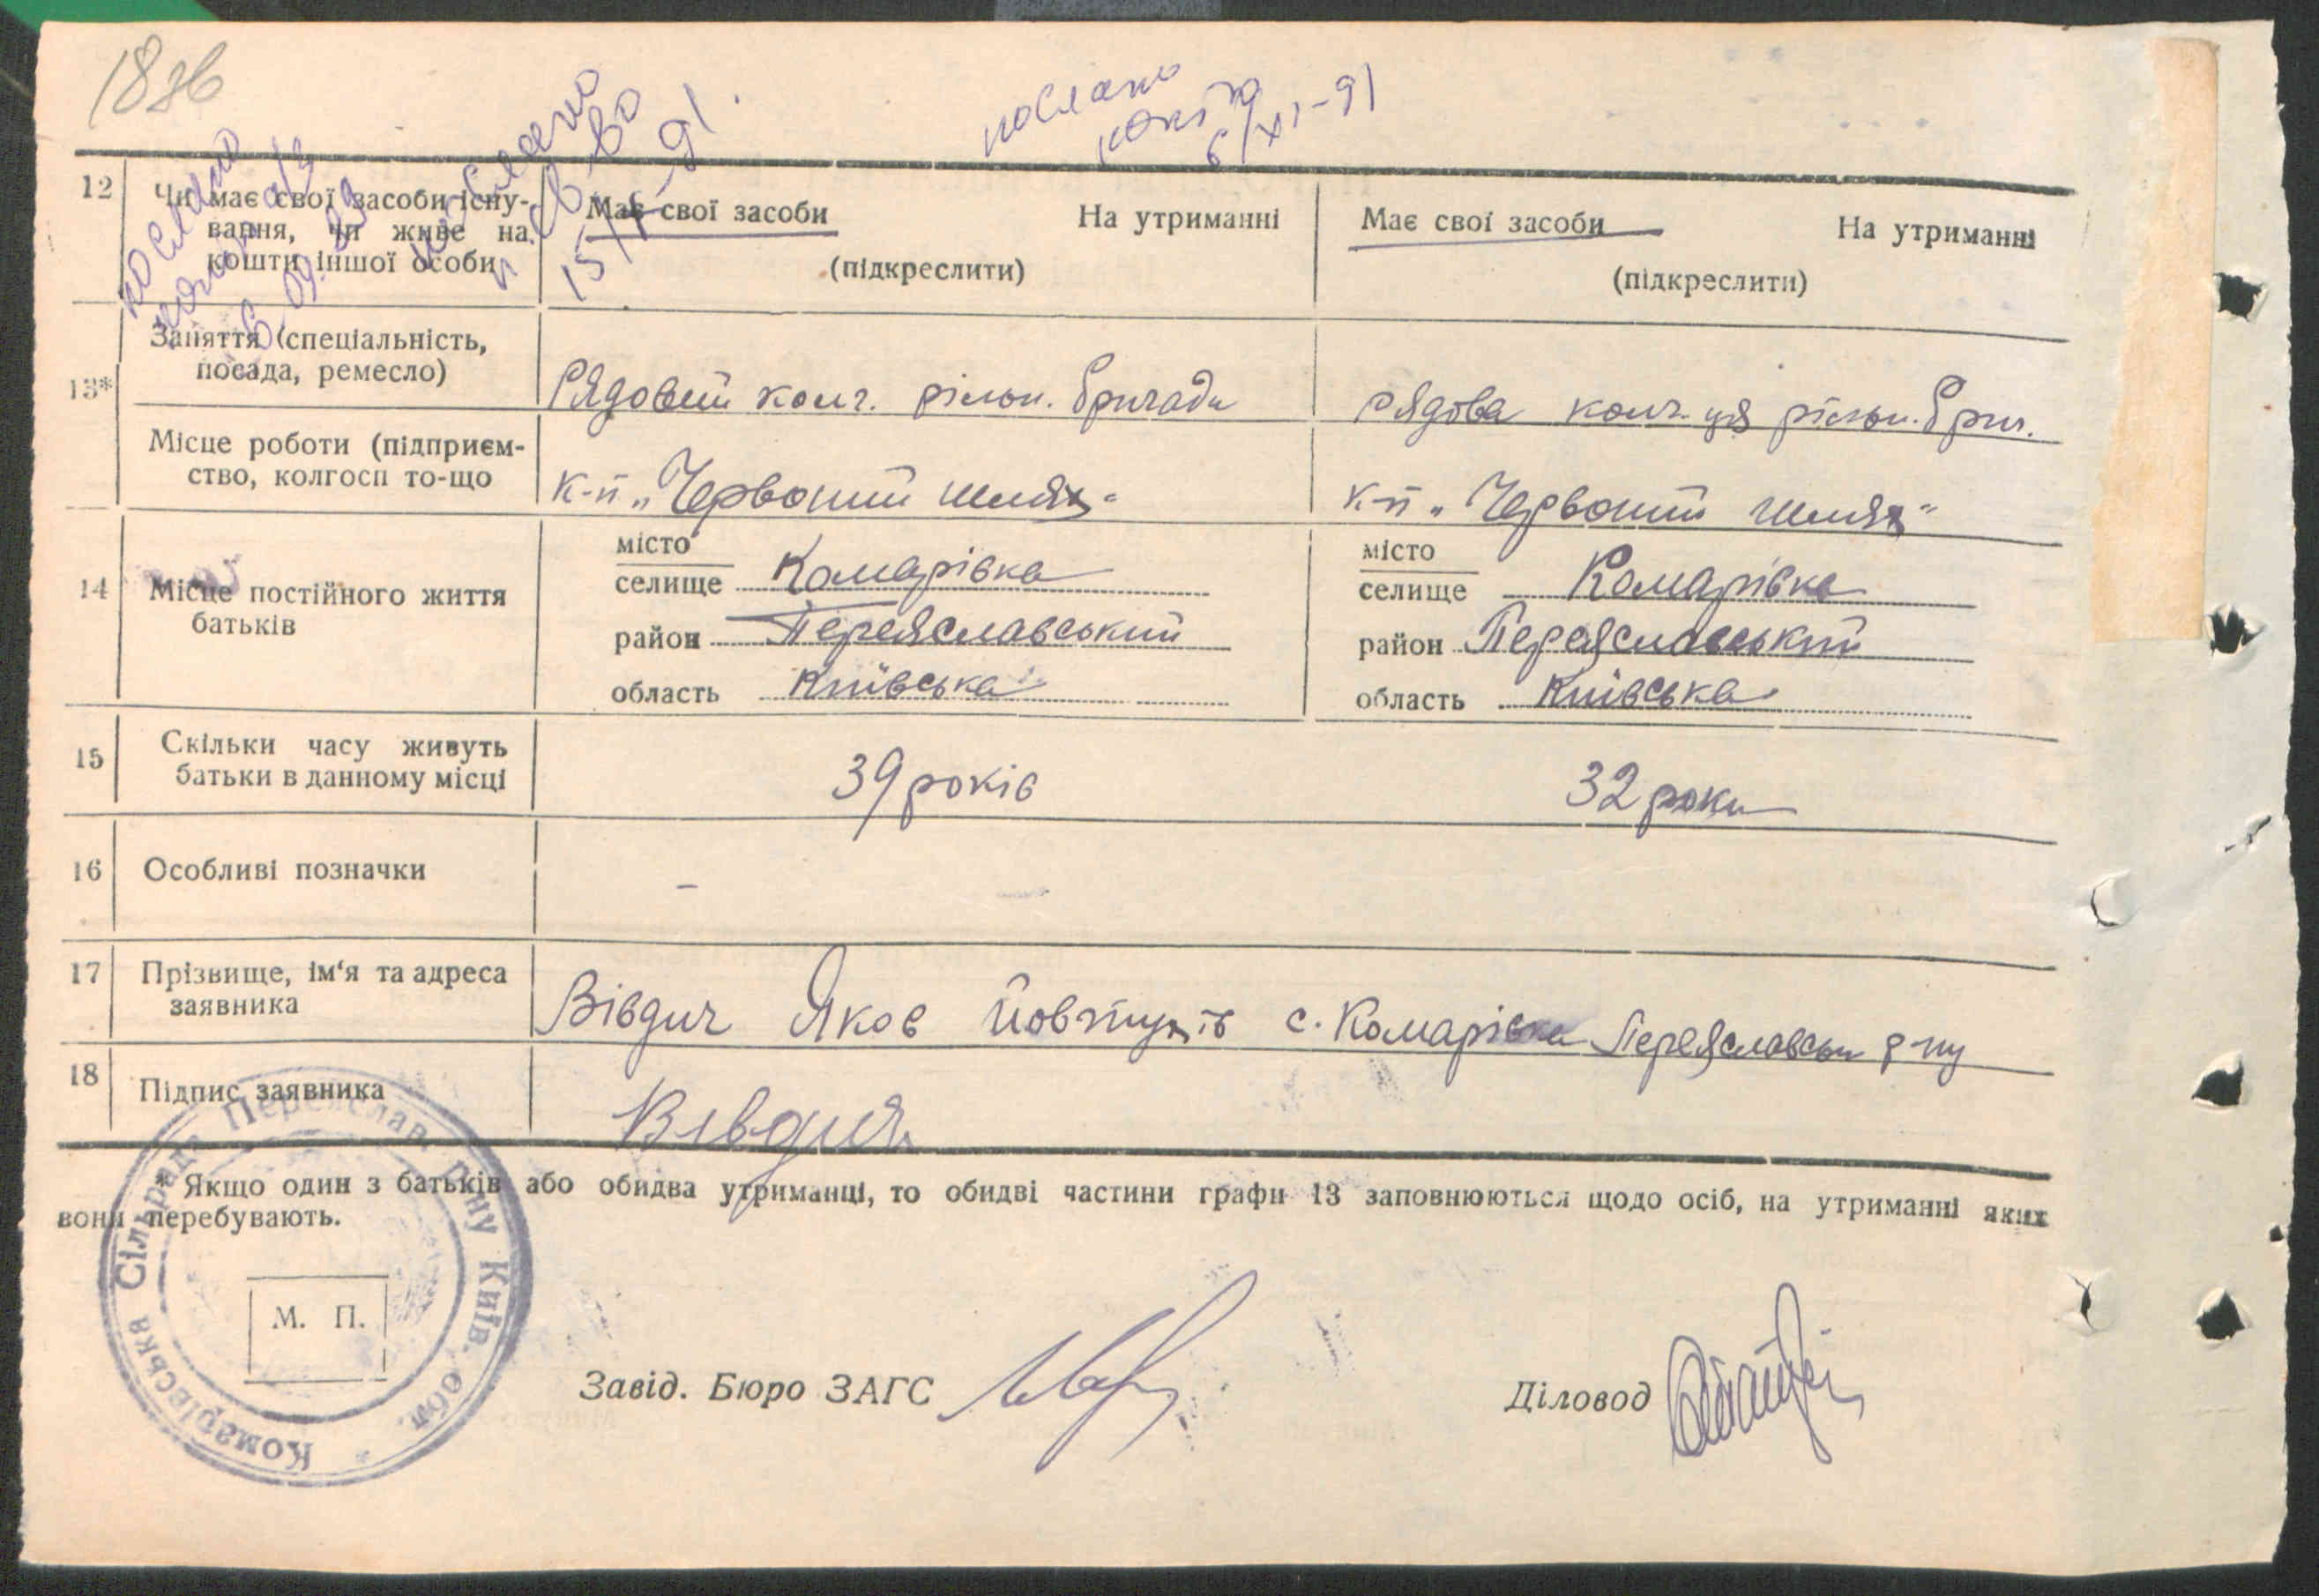 188б
послано
6/XI-91
послано
послано
п св-во
15/V-91.
12
Чи має свої засоби існу-
вання, чи живе на
кошти іншої особи
Має свої засоби На утриманні
(підкреслити)
Має свої засоби На утриманні
(підкреслити)
13*
Заняття (спеціальність,
посада, ремесло)
Рядовий колг. рільн. бригади
рядова колг-ця рільн. бриг.
Місце роботи (підприєм-
ство, колгосп то-що
К-п „Червоний шлях“
к-п „Червоний шлях“
14
Місце постійного життя
батьків
місто
селище Комарівка
район Переяславський
область Київська
місто
селище Комарівка
район Переяславський
область Київська
15
Скільки часу живуть
батьки в данному місці
39 років
32 роки
16
Особливі позначки
–
17
Прізвище, ім‘я та адреса
заявника
Вівдич Яков с. Комарівка Переяславськ р-ну
18
Підпис заявника
Вівдич
* Якщо один з батьків або обидва утриманці, то обидві частини графи 13 заповнюються щодо осіб, на утриманні яких
вони перебувають.
Комарівська Сільрада Переяслав. р-ну Київ. обл. *
М. П.
Завід. Бюро ЗАГС
Діловод